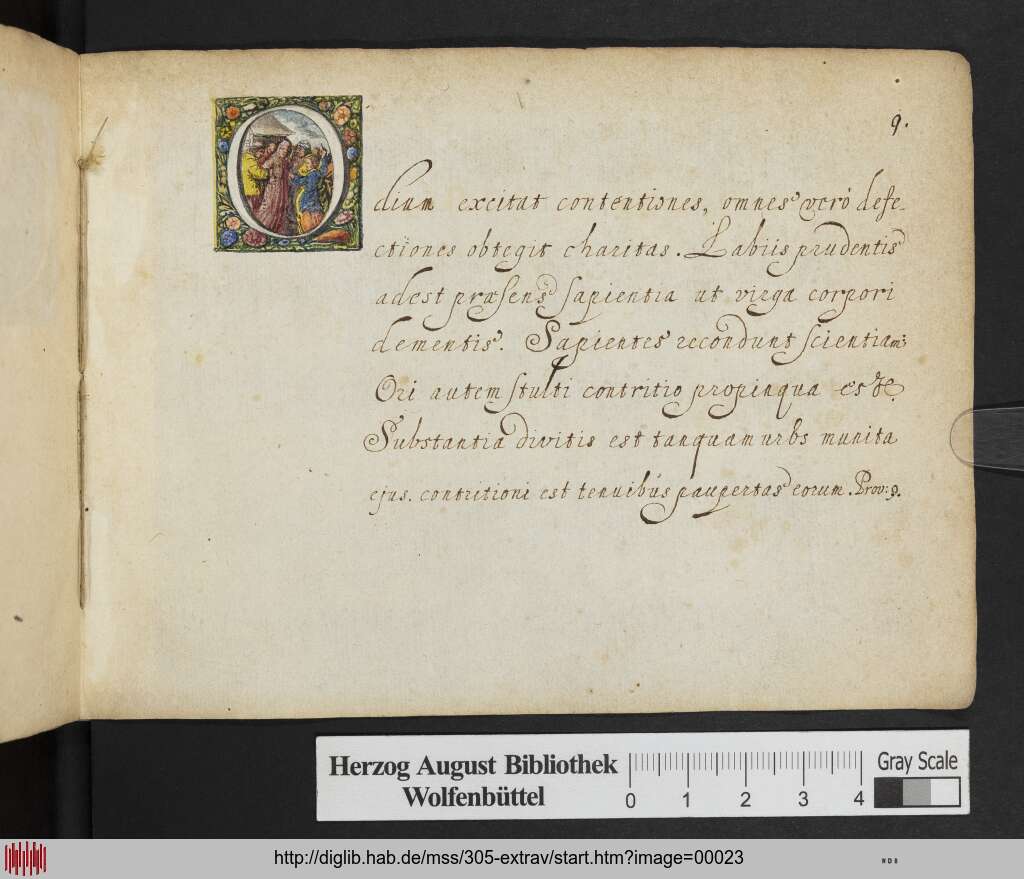 9.
Odium excitat contentiones, omnes verò defe-
ctiones obtegit charitas. Labiis prudentis
adest præsens sapientia ut virga corpori
dementis. Sapientes recondunt scientiam:
Ori autem stulti contritio propinqua est.
Substantia divitis est tanquam urbs munita
ejus. contritioni est tenuibus paupertas eorum. Prov: 9.
Herzog August Bibliothek
Wolfenbüttel
0 1 2 3 4
Gray Scale
http://diglib.hab.de/mss/305-extrav/start.htm?image=00023